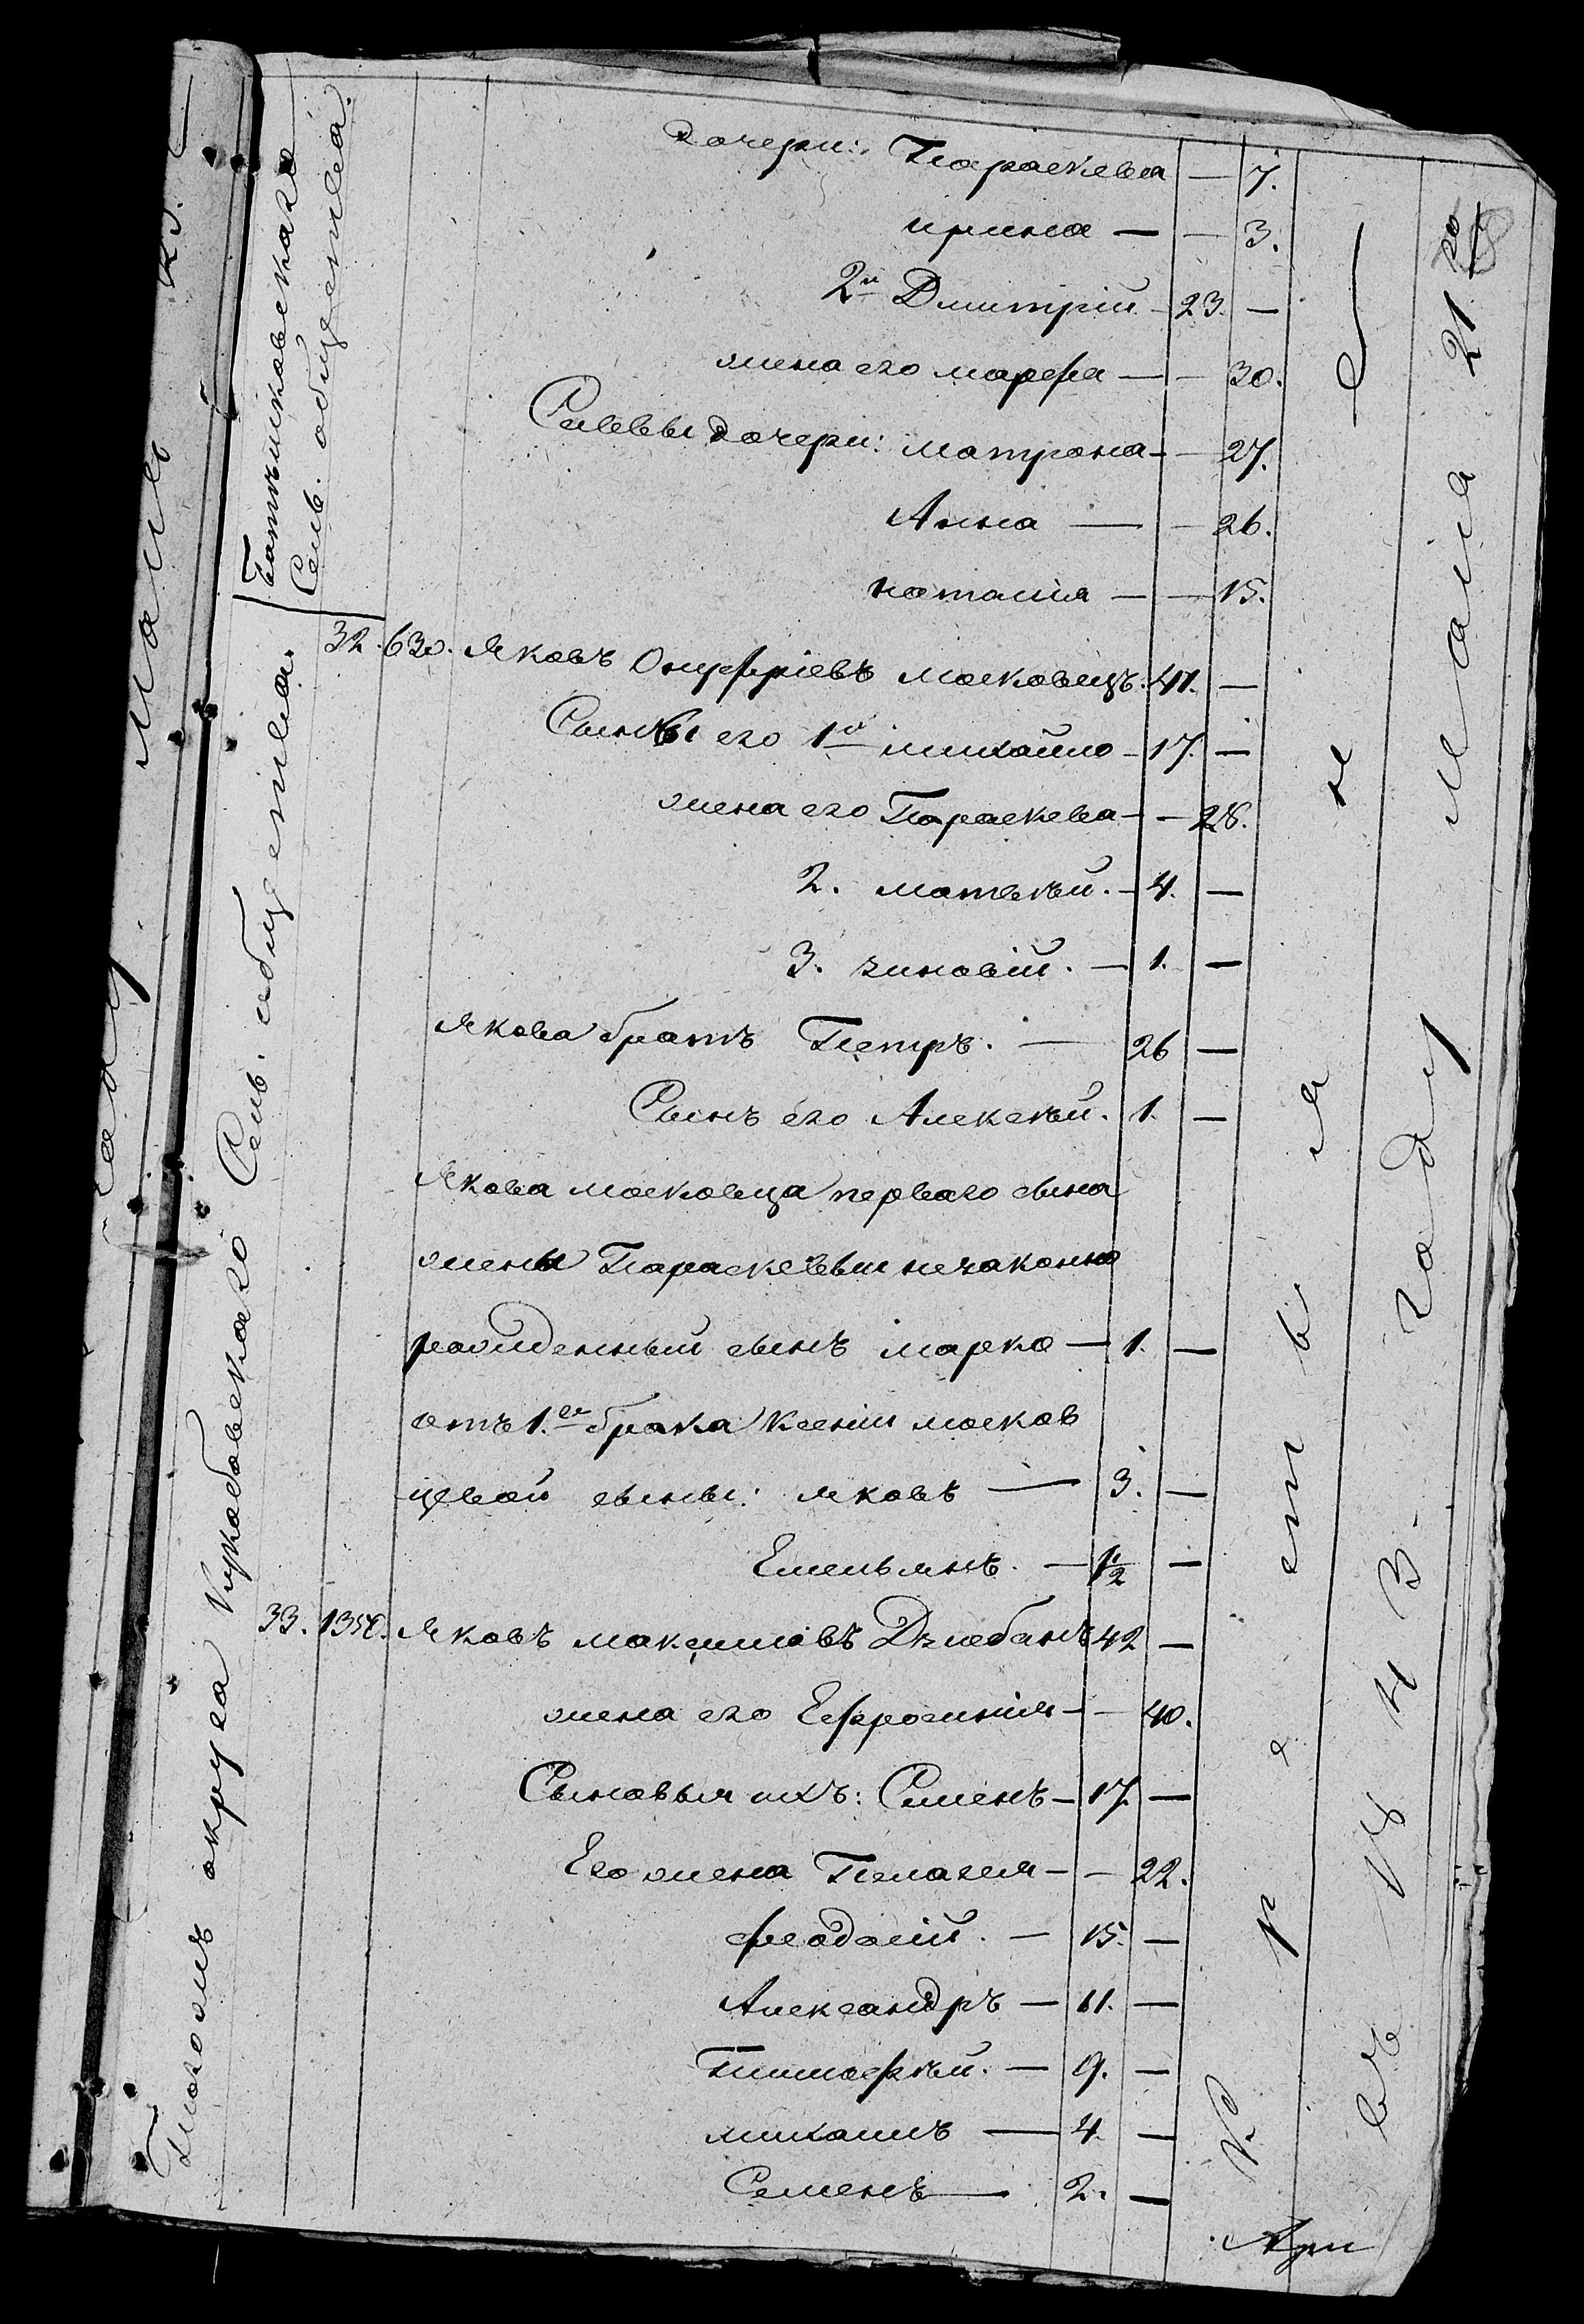 дочери: Параскева — 7.
ирина — — 3.
2й Дмитрій — 23. —
жена его марфа — — 30.
Саввы дочери: матрона — — 27.
Анна — — 26.
наталія — — 15.
32. 630. Яковъ Онуфріевъ московецъ. 41. —
Сыны его 1й михайло — 17. —
жена его Параскева — — 28.
2. матвѣй. — 4. —
3. зиновій. — 1. —
якова братъ Петръ. — 26 —
Сынъ его Алексѣй. 1. —
Якова московца перваго сына
жены Параскевы незаконно
рожденный сынъ марко — 1. —
отъ 1.го брака Ксеніи москов
цевой сыны: яковъ — 3. —
Емельянъ. — 1/2 —
33. 1350. Яковъ максимовъ 42 —
жена его Ефросинія — — 40.
Сыновья ихъ: Семенъ — 17. —
Его жена Пелагея — — 22.
феодосій. — 15. —
Александръ — 11. —
Тимофѣй. — 9. —
михаилъ — 4. —
Семенъ — 2. —
округа Сель. общества.
Сель. общества.
К р е с т ь я н е
въ году маія 21